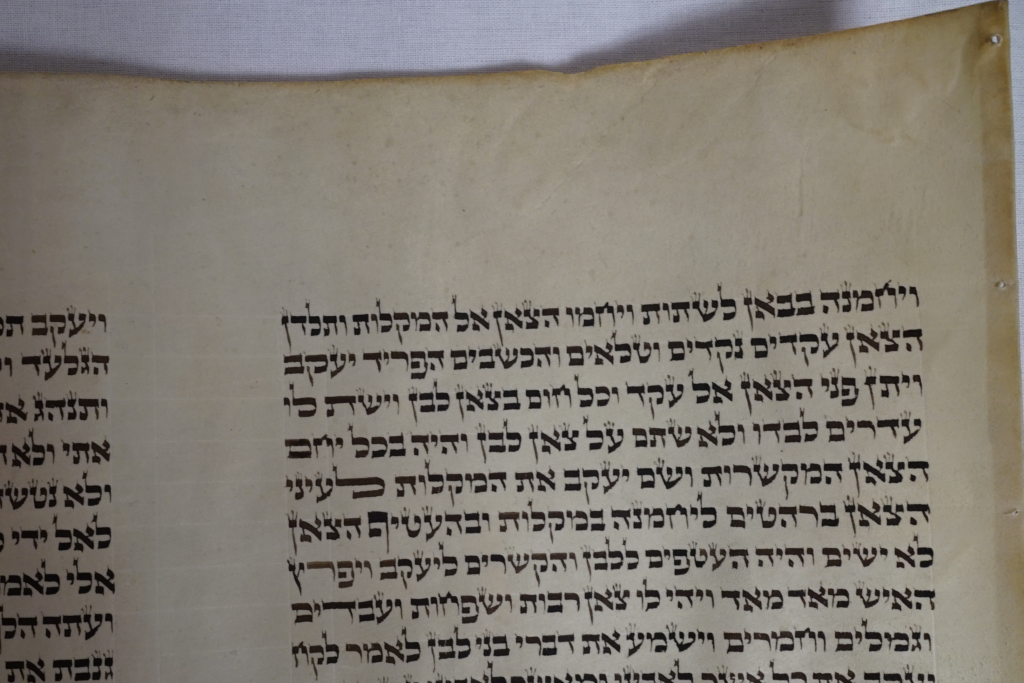 ויחמנה בבאן לשתות ויחמו הצאן אל המקלות ותלדן
הצאן עקדים נקדים וטלאים והכשבים הפריד יעקב
ויתן פני הצאן אל עקד וכל חום בצאן לבן וישת לו
עדרים לבדו ולא שתם על צאן לבן והיה בכל יחם
הצאן המקשרות ושם יעקב את המקלות לעיני
הצאן ברהטים ליחמנה במקלות ובהעטיף הצאן
לא ישים והיה העטפים ללבן והקשרים ליעקב ויפרץ
האיש מאד מאד ויהי לו צאן רבות ושפחות ועבדים
וגמלים וחמרים וישמע את דברי בני לבן לאמר לקח
ויעקב
הגלעד
ותנהג
אתי
ולא
לאל ידי
אלי
ועתה
גנבת את